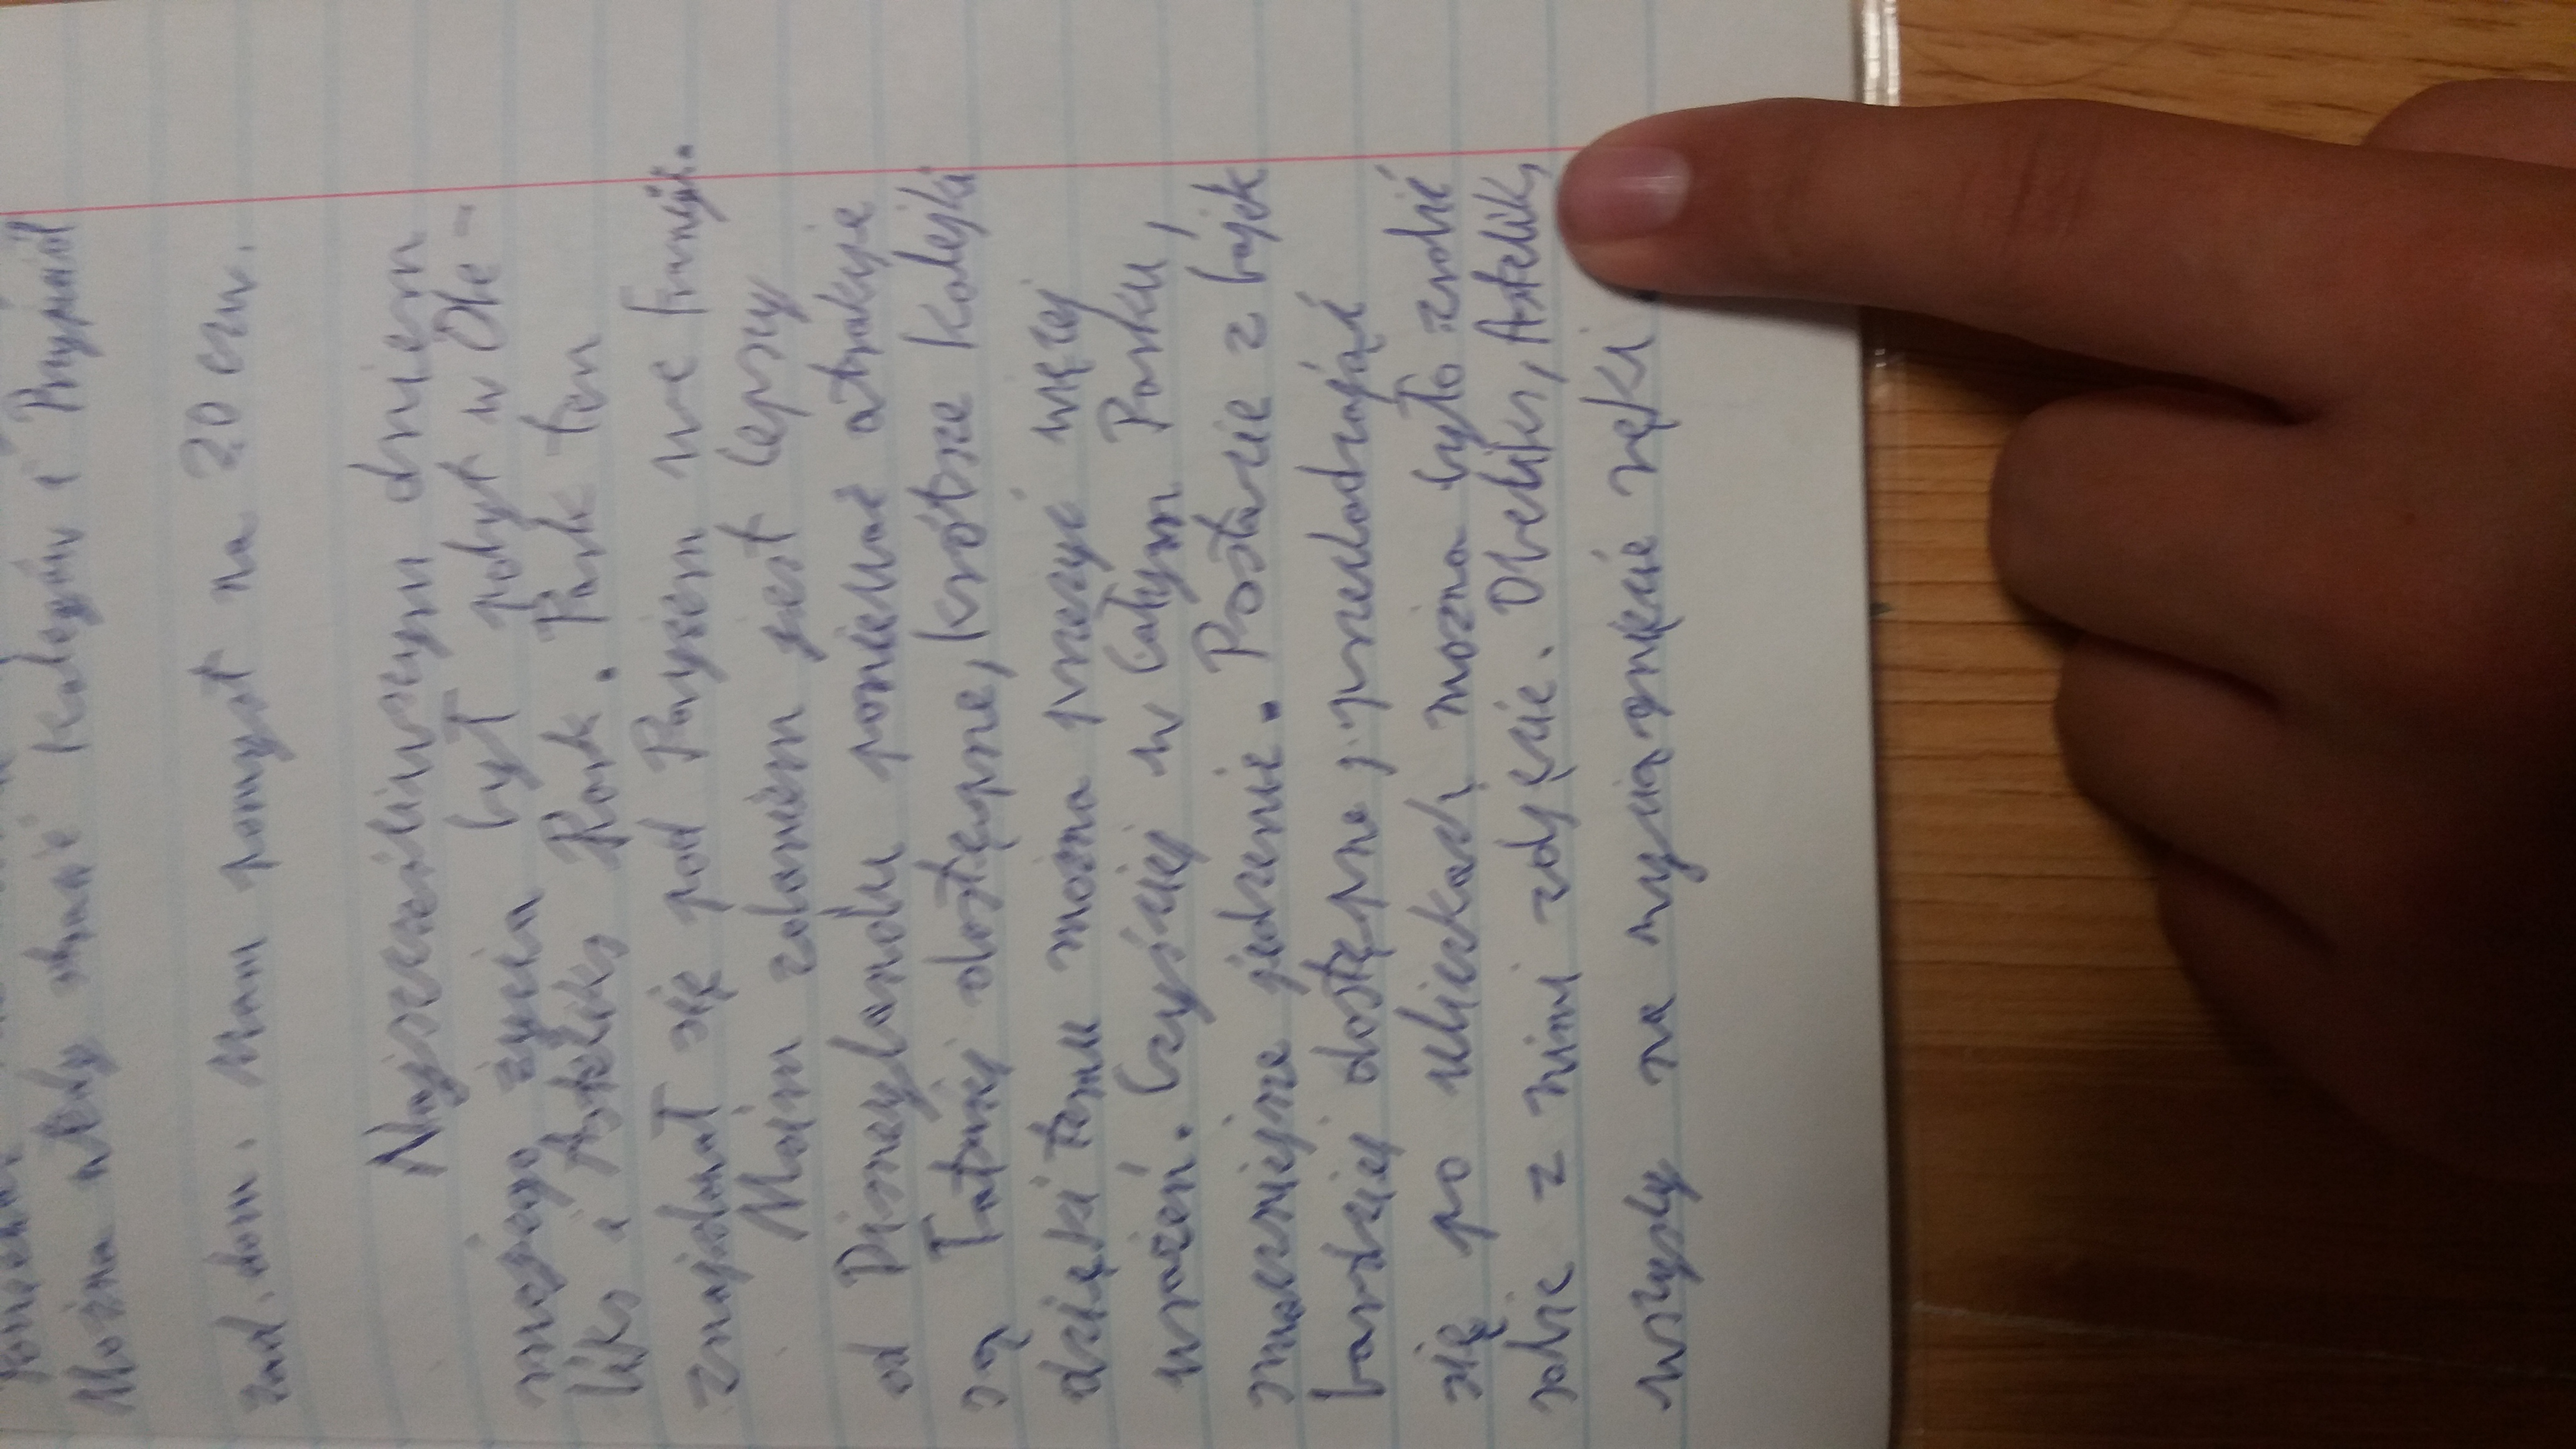 Można wtedy stracić kolegów i Przyjaciół
zad. dom. Mam pomysł na 20 czw.
Najszczęśliwszym dniem
mojego życia był pobyt w Obe-
liks i Asteliks Park. Park ten
znajdował się pod Paryżem we Francji.
Moim zdaniem jest lepszy
od Disneylandu ponieważ atrakcje
są Łatwiej dostępne, krótsze kolejki
dzięki temu można przeżyć więcej
wrażeń. Czyściej w całym Parku,
smaczniejsze jedzenie. Postacie z bajek
bardziej dostępne, przechadzając
się po uliczkach można było zrobić
sobie z nimi zdjęcie. Obeliks, Asteliks,
wszyscy na wyciągnięcie ręki.